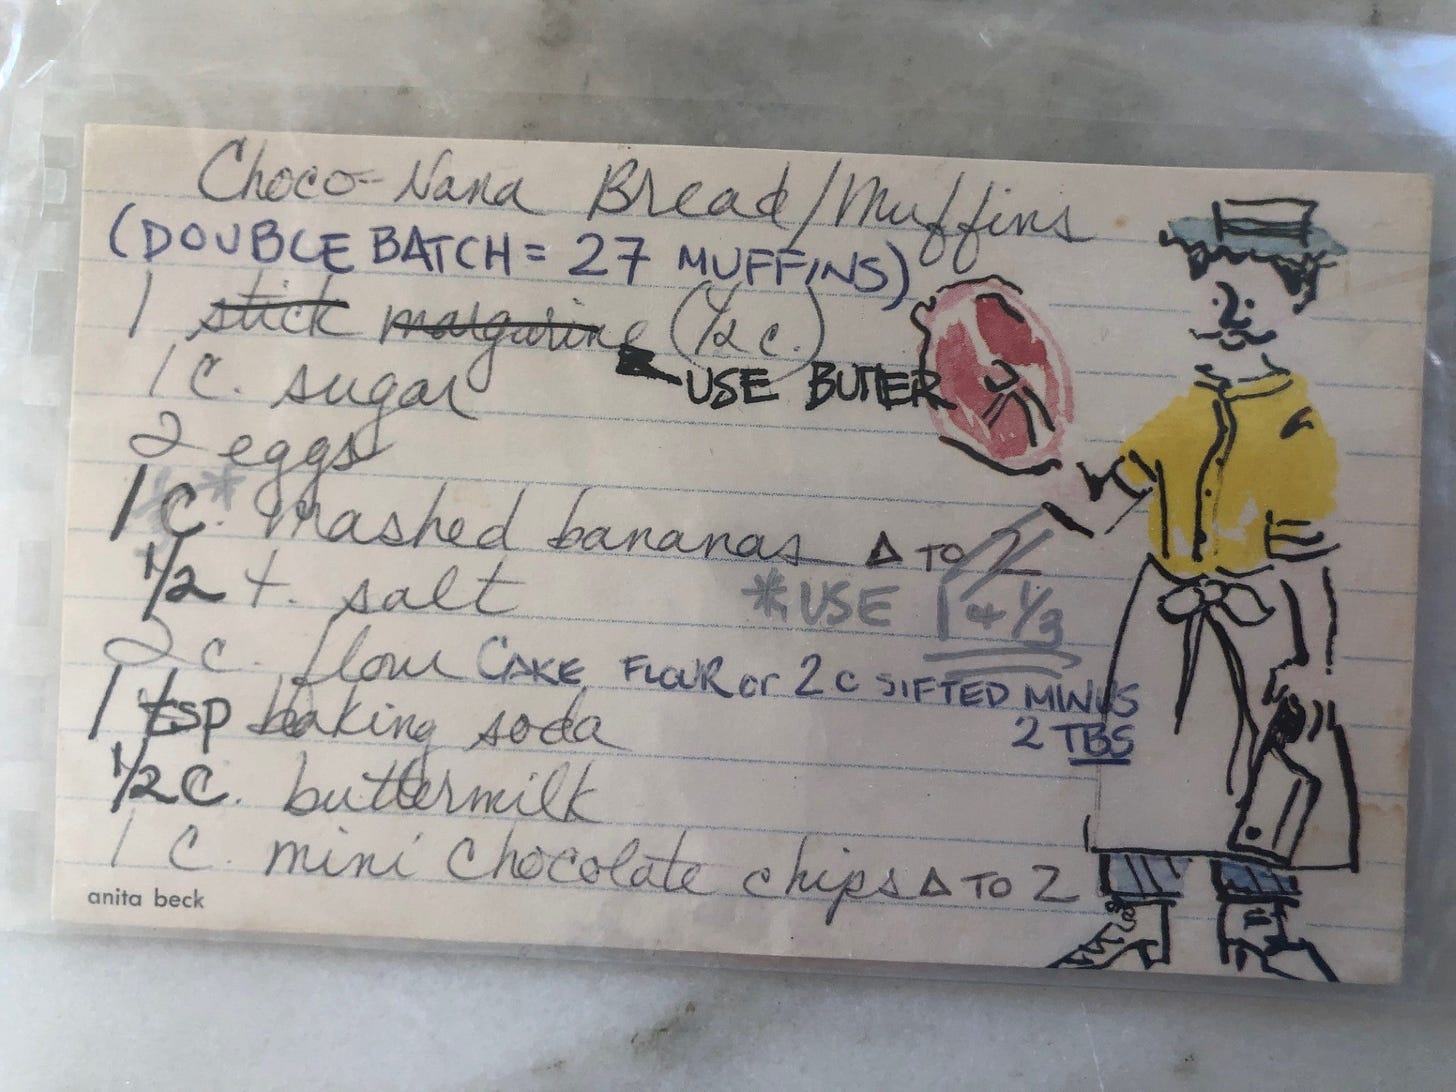 Choco-Nana Bread/Muffins
(DOUBLE BATCH = 27 MUFFINS)
1 stick margarine (1/2 c.)
USE BUTTER
1 c. sugar
2 eggs
1 c.* mashed bananas Δ TO 2
*USE 1 + 1/3
1/2 t. salt
2 c. flour CAKE FLOUR or 2 c SIFTED MINUS
2 TBS
1 tsp baking soda
1/2 c. buttermilk
1 c. mini chocolate chips Δ TO 2
anita beck